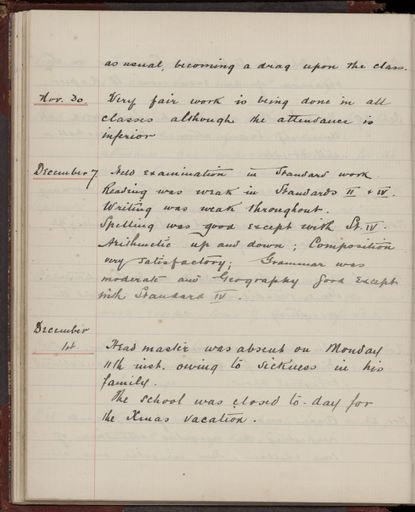 as usual, becoming a drag upon the class.
Nov. 30. Very fair work is being done in all
classes although the attendance is
inferior
December 7. Held examination in Standard work
Reading was weak in Standards II & IV.
Writing was weak throughout.
Spelling was good except with St. IV.
Arithmetic up and down; Composition
very satisfactory; Grammar was
moderate and Geography good except
with Standard IV.
December
Head master was absent on Monday
11th inst. owing to sickness in his
family.
The school was closed to-day for
the Xmas vacation.